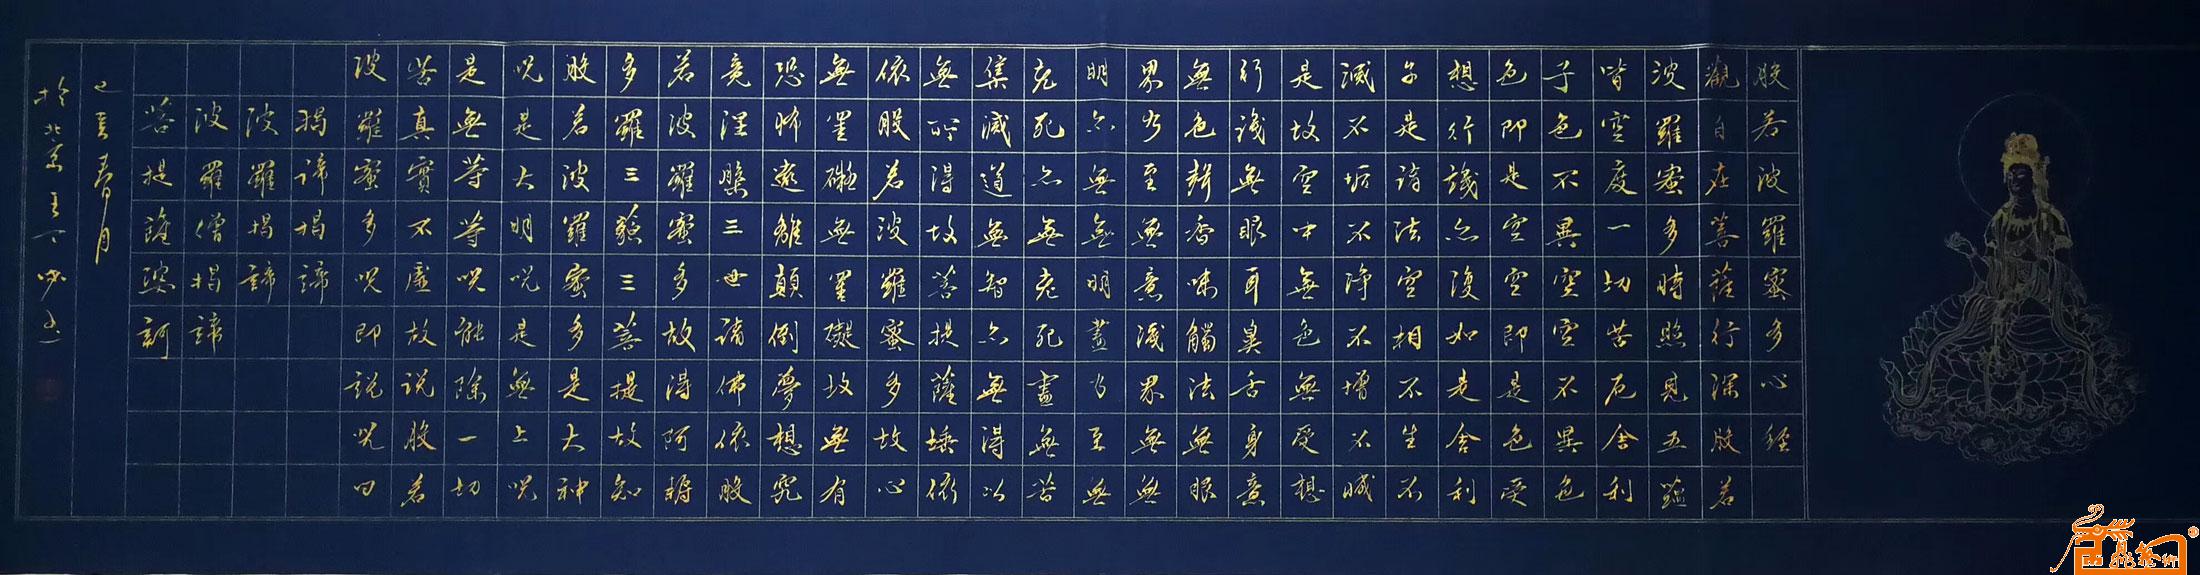 般若波羅蜜多心經
觀自在菩薩行深般若
波羅蜜多時照見五蘊
皆空度一切苦厄舍利
子色不異空空不異色
色即是空空即是色受
想行識亦復如是舍利
子是諸法空相不生不
滅不垢不淨不增不減
是故空中無色無受想
行識無眼耳鼻舌身意
無色聲香味觸法無眼
界乃至無意識界無無
明亦無無明盡乃至無
老死亦無老死盡無苦
集滅道無智亦無得以
無所得故菩提薩埵依
依般若波羅蜜多故心
無罣礙無罣礙故無有
恐怖遠離顛倒夢想究
竟涅槃三世諸佛依般
若波羅蜜多故得阿耨
多羅三藐三菩提故知
般若波羅蜜多是大神
咒是大明咒是無上咒
是無等等咒能除一切
苦真實不虛故說般若
波羅蜜多咒即說咒曰
揭諦揭諦
波羅揭諦
波羅僧揭諦
菩提薩婆訶
己亥春月
於北京